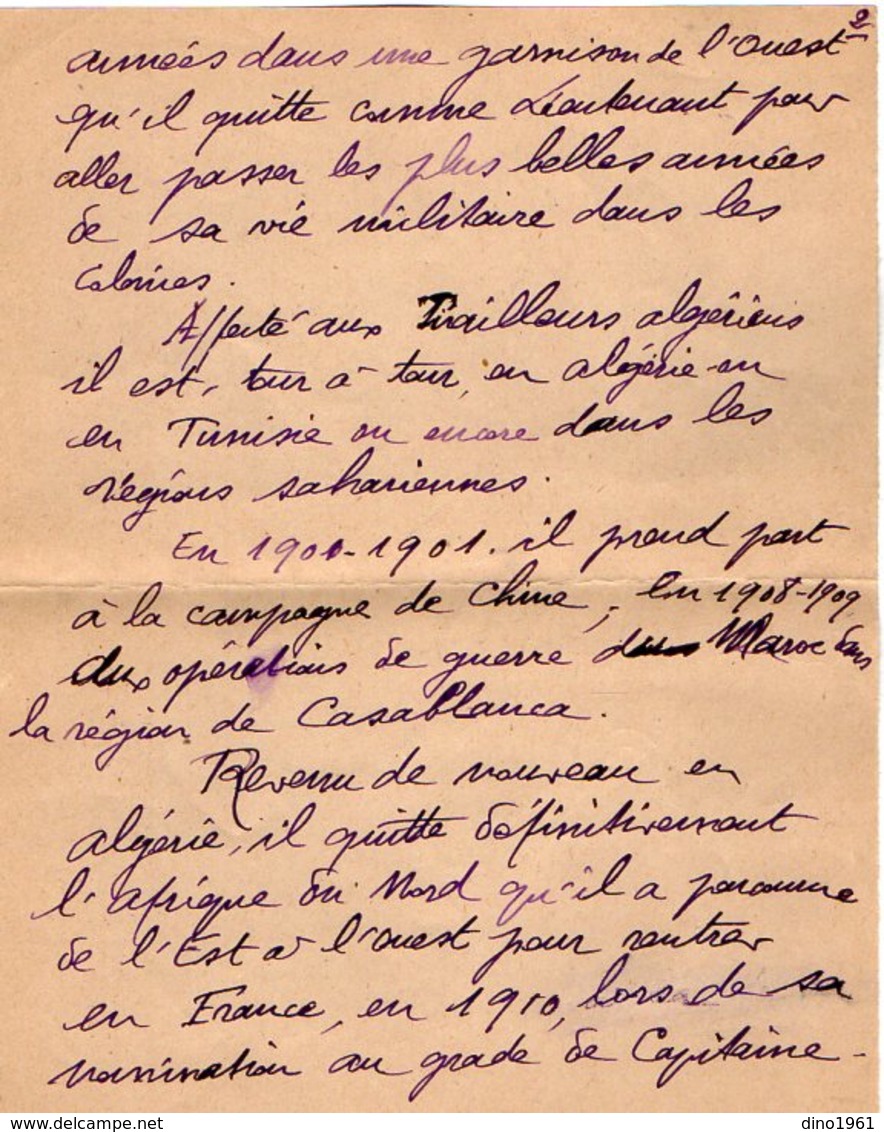 2
années dans une garnison de l'Ouest
qu'il quitte comme Lieutenant pour
aller passer les plus belles années
de sa vie militaire dans les
Colonies.
Affecté aux Tirailleurs algériens
il est, tour à tour, en algérie ou
en Tunisie ou encore dans les
régions sahariennes.
En 1900-1901. il prend part
à la campagne de Chine, En 1908-1909
aux opérations de guerre du Maroc dans
la région de Casablanca.
Revenu de nouveau en
algérie, il quitte définitivement
l'afrique du Nord qu'il a parcourue
de l'Est à l'ouest pour rentrer
en France, en 1910, lors de sa
nomination au grade de Capitaine.
www.delcampe.net
dino1961